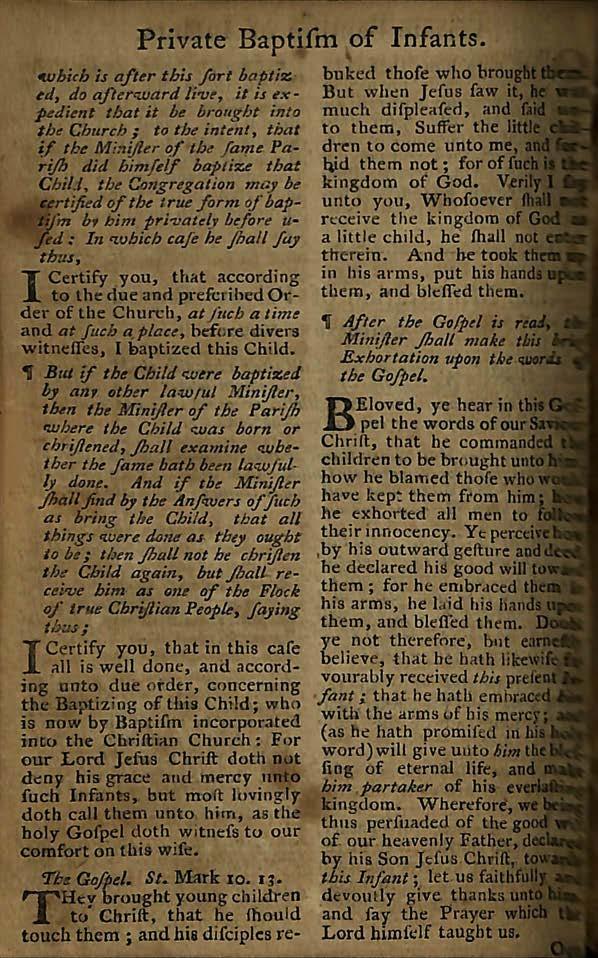 Private Baptiſm of Infants.
which is after this ſort baptiz-
ed, do afterward live, it is ex-
pedient that it be brought into
the Church; to the intent, that
if the Miniſter of the ſame Pa-
riſh did himſelf baptize that
Child, the Congregation may be
certified of the true form of bap-
tiſm by him privately before u-
ſed: In which caſe he ſhall ſay
thus,
I Certify you, that according
to the due and preſcribed Or-
der of the Church, at ſuch a time
and at ſuch a place, before divers
witneſſes, I baptized this Child.
¶ But if the Child were baptized
by any other lawful Miniſter,
then the Miniſter of the Pariſh
where the Child was born or
chriſtened, ſhall examine whe-
ther the ſame hath been lawful-
ly done. And if the Miniſter
ſhall find by the Anſwers of ſuch
as bring the Child, that all
things were done as they ought
to be; then ſhall not he chriſten
the Child again, but ſhall re-
ceive him as one of the Flock
of true Chriſtian People, ſaying
thus;
I Certify you, that in this caſe
all is well done, and accord-
ing unto due order, concerning
the Baptizing of this Child; who
is now by Baptiſm incorporated
into the Chriſtian Church: For
our Lord Jeſus Chriſt doth not
deny his grace and mercy unto
ſuch Infants, but moſt lovingly
doth call them unto him, as the
holy Goſpel doth witneſs to our
comfort on this wiſe.
The Goſpel. St. Mark 10. 13.
THey brought young children
to Chriſt, that he ſhould
touch them; and his diſciples re-
buked thoſe who brought them.
But when Jeſus ſaw it, he was
much diſpleaſed, and ſaid
to them, Suffer the little chil-
dren to come unto me, and for-
bid them not; for of ſuch is the
kingdom of God. Verily I ſay
unto you, Whoſoever ſhall not
receive the kingdom of God as
a little child, he ſhall not enter
therein. And he took them up
in his arms, put his hands upon
them, and bleſſed them.
¶ After the Goſpel is read, the
Miniſter ſhall make this
Exhortation upon the words
the Goſpel.
BEloved, ye hear in this Goſ-
pel the words of our Saviour
Chriſt, that he commanded the
children to be brought unto him;
how he blamed thoſe who would
have kept them from him; how
he exhorted all men to follow
their innocency. Ye perceive how
by his outward geſture and deed
he declared his good will toward
them; for he embraced them in
his arms, he laid his hands upon
them, and bleſſed them. Doubt
ye not therefore, but earneſtly
believe, that he hath likewiſe fa-
vourably received this preſent In-
fant; that he hath embraced him
with the arms of his mercy; and
(as he hath promiſed in his holy
word) will give unto him the bleſ-
ſing of eternal life, and make
him partaker of his everlaſting
kingdom. Wherefore, we being
thus perſuaded of the good will
of our heavenly Father, declared
by his Son Jeſus Chriſt, towards
this Infant; let us faithfully and
devoutly give thanks unto him,
and ſay the Prayer which the
Lord himſelf taught us.